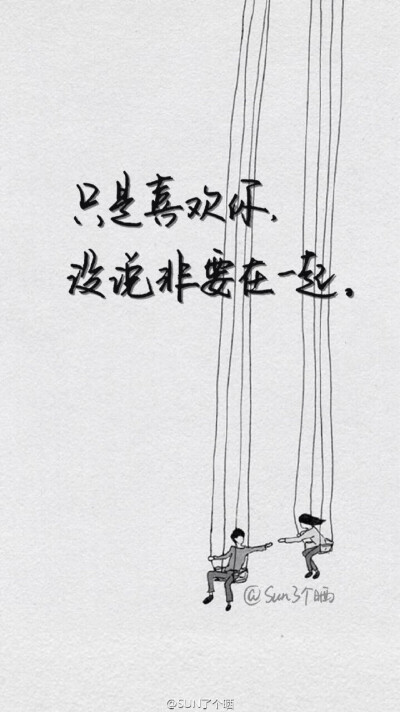 只是喜欢你，
没说非要在一起。
@Sun了个晒
@SUN了个晒